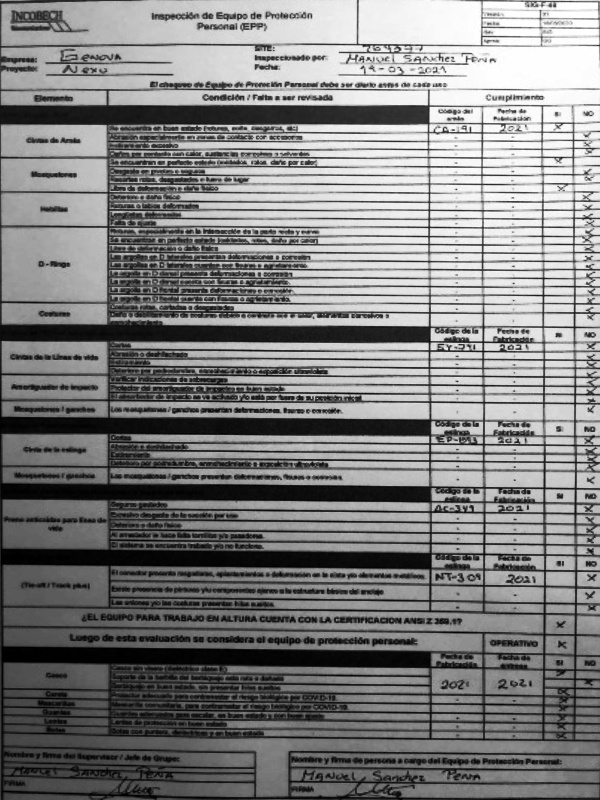 INCOBECH
Inspección de Equipo de Protección
Personal (EPP)
SIG-F-68
Empresa: GENOVA
SITE: 764397
Proyecto: NEXU
Inspeccionado por: MANUEL SANCHEZ PEÑA
Fecha: 19-03-2021
El chequeo de Equipo de Protección Personal debe ser diario antes de cada uso
Elemento Condición / Falta a ser revisada Cumplimiento
Código del arnés Fecha de Fabricación SI NO
Cintas de Arnés
Se encuentra en buen estado (roturas, corte, desgarros, etc) CA-191 2021 X
Abrasión especialmente en zonas de contacto con accesorios - - X
Estiramiento excesivo - - X
Daños por contacto con calor, sustancias corrosivas o solventes - - X
Mosquetones
Se encuentran en perfecto estado (oxidados, rotos, daño por calor) - - X
Desgaste en pivotes o seguros - - X
Resortes rotos, desgastados o fuera de lugar - - X
Libre de deformación o daño físico - - X
Hebillas
Deterioro o daño físico - - X
Roturas o lados deformados - - X
Lengüetas deformadas - - X
Falta de ajuste - - X
D - Rings
Roturas, especialmente en la intersección de la parte recta y curva - - X
Se encuentran en perfecto estado (oxidados, rotos, daño por calor) - - X
Libre de deformación o daño físico - - X
Las argollas en D laterales presentan deformaciones o corrosión - - X
Las argollas en D laterales cuentan con fisuras o agrietamiento. - - X
La argolla en D dorsal presenta deformaciones o corrosión - - X
La argolla en D dorsal cuenta con fisuras o agrietamiento. - - X
La argolla en D frontal presenta deformaciones o corrosión. - - X
La argolla en D frontal cuenta con fisuras o agrietamiento. - - X
Costuras
Costuras rotas, cortadas o desgastadas - - X
Daño o debilitamiento de costuras debido a contacto con el calor, elementos corrosivos o - - X
Código de la eslinga Fecha de Fabricación SI NO
Cintas de la Línea de vida
Cortes EY-741 2021 X
Abrasión o deshilachado - - X
Estiramiento - - X
Deterioro por podredumbre, enmohecimiento o exposición ultravioleta - - X
Amortiguador de impacto
Verificar indicaciones de sobrecargas - - X
Protector del amortiguador de impactos en buen estado - - X
El absorbedor de impacto se ve activado y/o está por fuera de su posición inicial - - X
Mosquetones / ganchos
Los mosquetones / ganchos presentan deformaciones, fisuras o corrosión. - - X
Código de la eslinga Fecha de Fabricación SI NO
Cinta de la eslinga
Cortes EP-1593 2021 X
Abrasión o deshilachado - - X
Estiramiento - - X
Deterioro por podredumbre, enmohecimiento o exposición ultravioleta - - X
Mosquetones / ganchos
Los mosquetones / ganchos presentan deformaciones, fisuras o corrosión. - - X
Código de la eslinga Fecha de Fabricación SI NO
Freno anticaídas para línea de vida
Seguros gastados AC-349 2021 X
Excesivo desgaste de la sección por uso - - X
Deterioro o daño físico - - X
Al arrestador le hace falta tornillos y/o pasadores. - - X
El sistema se encuentra trabado y/o no funciona. - - X
Código de la eslinga Fecha de Fabricación SI NO
(Tie-off / Track plus)
El conector presenta rasgaduras, aplastamientos o deformación en la cinta y/o elementos metálicos. NT-309 2021 X
Existe presencia de pinturas y/o componentes ajenos a la estructura básica del anclaje - - X
Las uniones y/o las costuras presentan hilos sueltos. - - X
¿EL EQUIPO PARA TRABAJO EN ALTURA CUENTA CON LA CERTIFICACION ANSI Z 359.1? X
Luego de esta evaluación se considera el equipo de protección personal: OPERATIVO X
Fecha de Fabricación Fecha de entrega SI NO
Casco
Casco sin visera (dieléctrico clase E) X
Soporte de la barbilla del barbiquejo esta rota o dañada 2021 2021 X
Barbiquejo en buen estado, sin presentar hilos sueltos X
Careta
Protector adecuado para contrarrestar el riesgo biológico por COVID-19. - - X
Mascarillas
Mascarilla comunitaria, para contrarrestar el riesgo biológico por COVID-19. - - X
Guantes
Guantes adecuados para escalar, en buen estado y con buen ajuste - - X
Lentes
Lentes de protección en buen estado - - X
Botas
Botas con puntera, dieléctricas y en buen estado - - X
Nombre y firma del Supervisor / Jefe de Grupo:
MANUEL SANCHEZ PEÑA
FIRMA
Nombre y firma de persona a cargo del Equipo de Protección Personal:
MANUEL SANCHEZ PEÑA
FIRMA